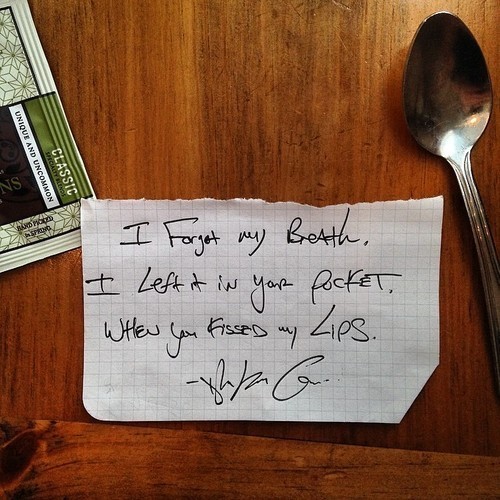 UNIQUE AND UNCOMMON
CLASSIC
NS
HAND PICKED
in SPRING
I Forgot my Breath.
I Left it in your pocket.
When you kissed my Lips.